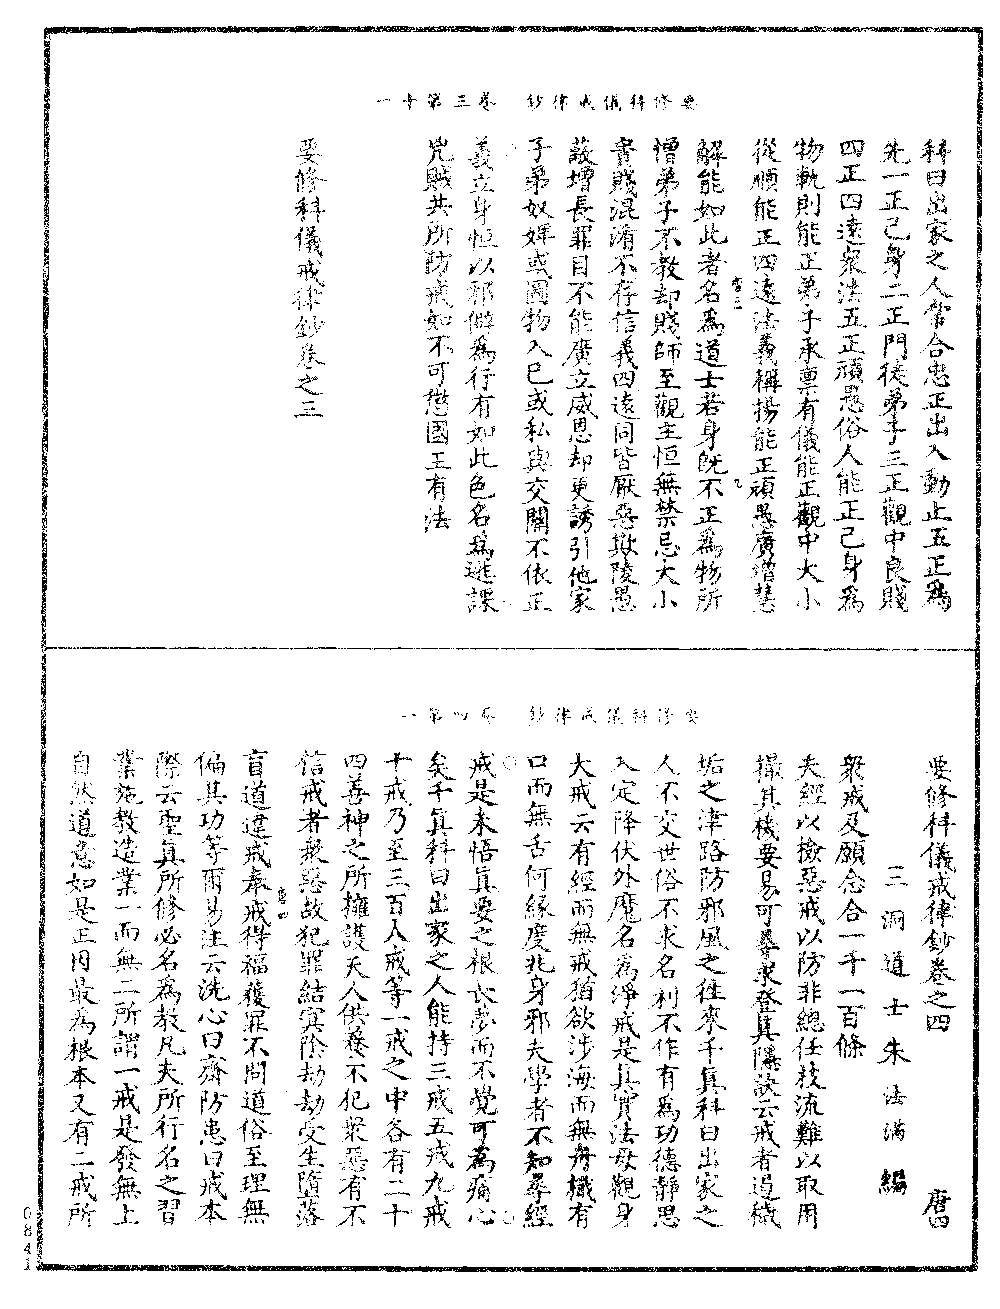 要修科儀戒律鈔　卷三第十一
科曰出家之人常合忠正出入動止五正爲
先一正己身二正門徒弟子三正觀中良賤
四正四遠衆法五正頑愚俗人能正己身爲
物軌則能正弟子承稟有儀能正觀中大小
從順能正四遠法義稱揚能正頑愚廣增慧
解能如此者名爲道士若身旣不正爲物所
憎弟子不教却賤師至觀主恒無禁忌大小
貴賤混淆不存信義四遠同皆厭惡欺陵愚
議增長罪目不能廣立威恩却更誘引他家
子弟奴婢或圖物入己或私與交關不依正
義立身恒以邪僻爲行有如此色名爲逃課
兇賊共所防戒如不可懲國王有法
要修科儀戒律鈔卷之三
要修科儀戒律鈔　卷四第一
要修科儀戒律鈔卷之四　唐四
三洞道士朱法滿編
衆戒及願念合一千一百條
夫經以檢惡戒以防非總任枝流難以取用
撮其機要易可尋求登真隱訣云戒者遏穢
垢之津路防邪風之往來千真科曰出家之
人不交世俗不求名利不作有爲功德靜思
入定降伏外魔名爲淨戒是真實法母觀身
大戒云有經而無戒猶欲涉海而無舟檝有
口而無舌何緣度兆身邪夫學者不知尋經
戒是未悟真要之根長夢而不覺可爲痛心
矣千真科曰出家之人能持三戒五戒九戒
十戒乃至三百人戒等一戒之中各有二十
四善神之所擁護天人供養不犯衆惡有不
信戒者衆惡故犯罪結冥陰劫劫受生墮落
盲道違戒奉戒得福獲罪不問道俗至理無
偏其功等爾易注云洗心曰齋防患曰戒本
際云聖真所修必名爲教凡夫所行名之習
業施教造業一而無二所謂一戒是發無上
自然道意如是正因最爲根本又有二戒所
唐三
九
唐四
0841